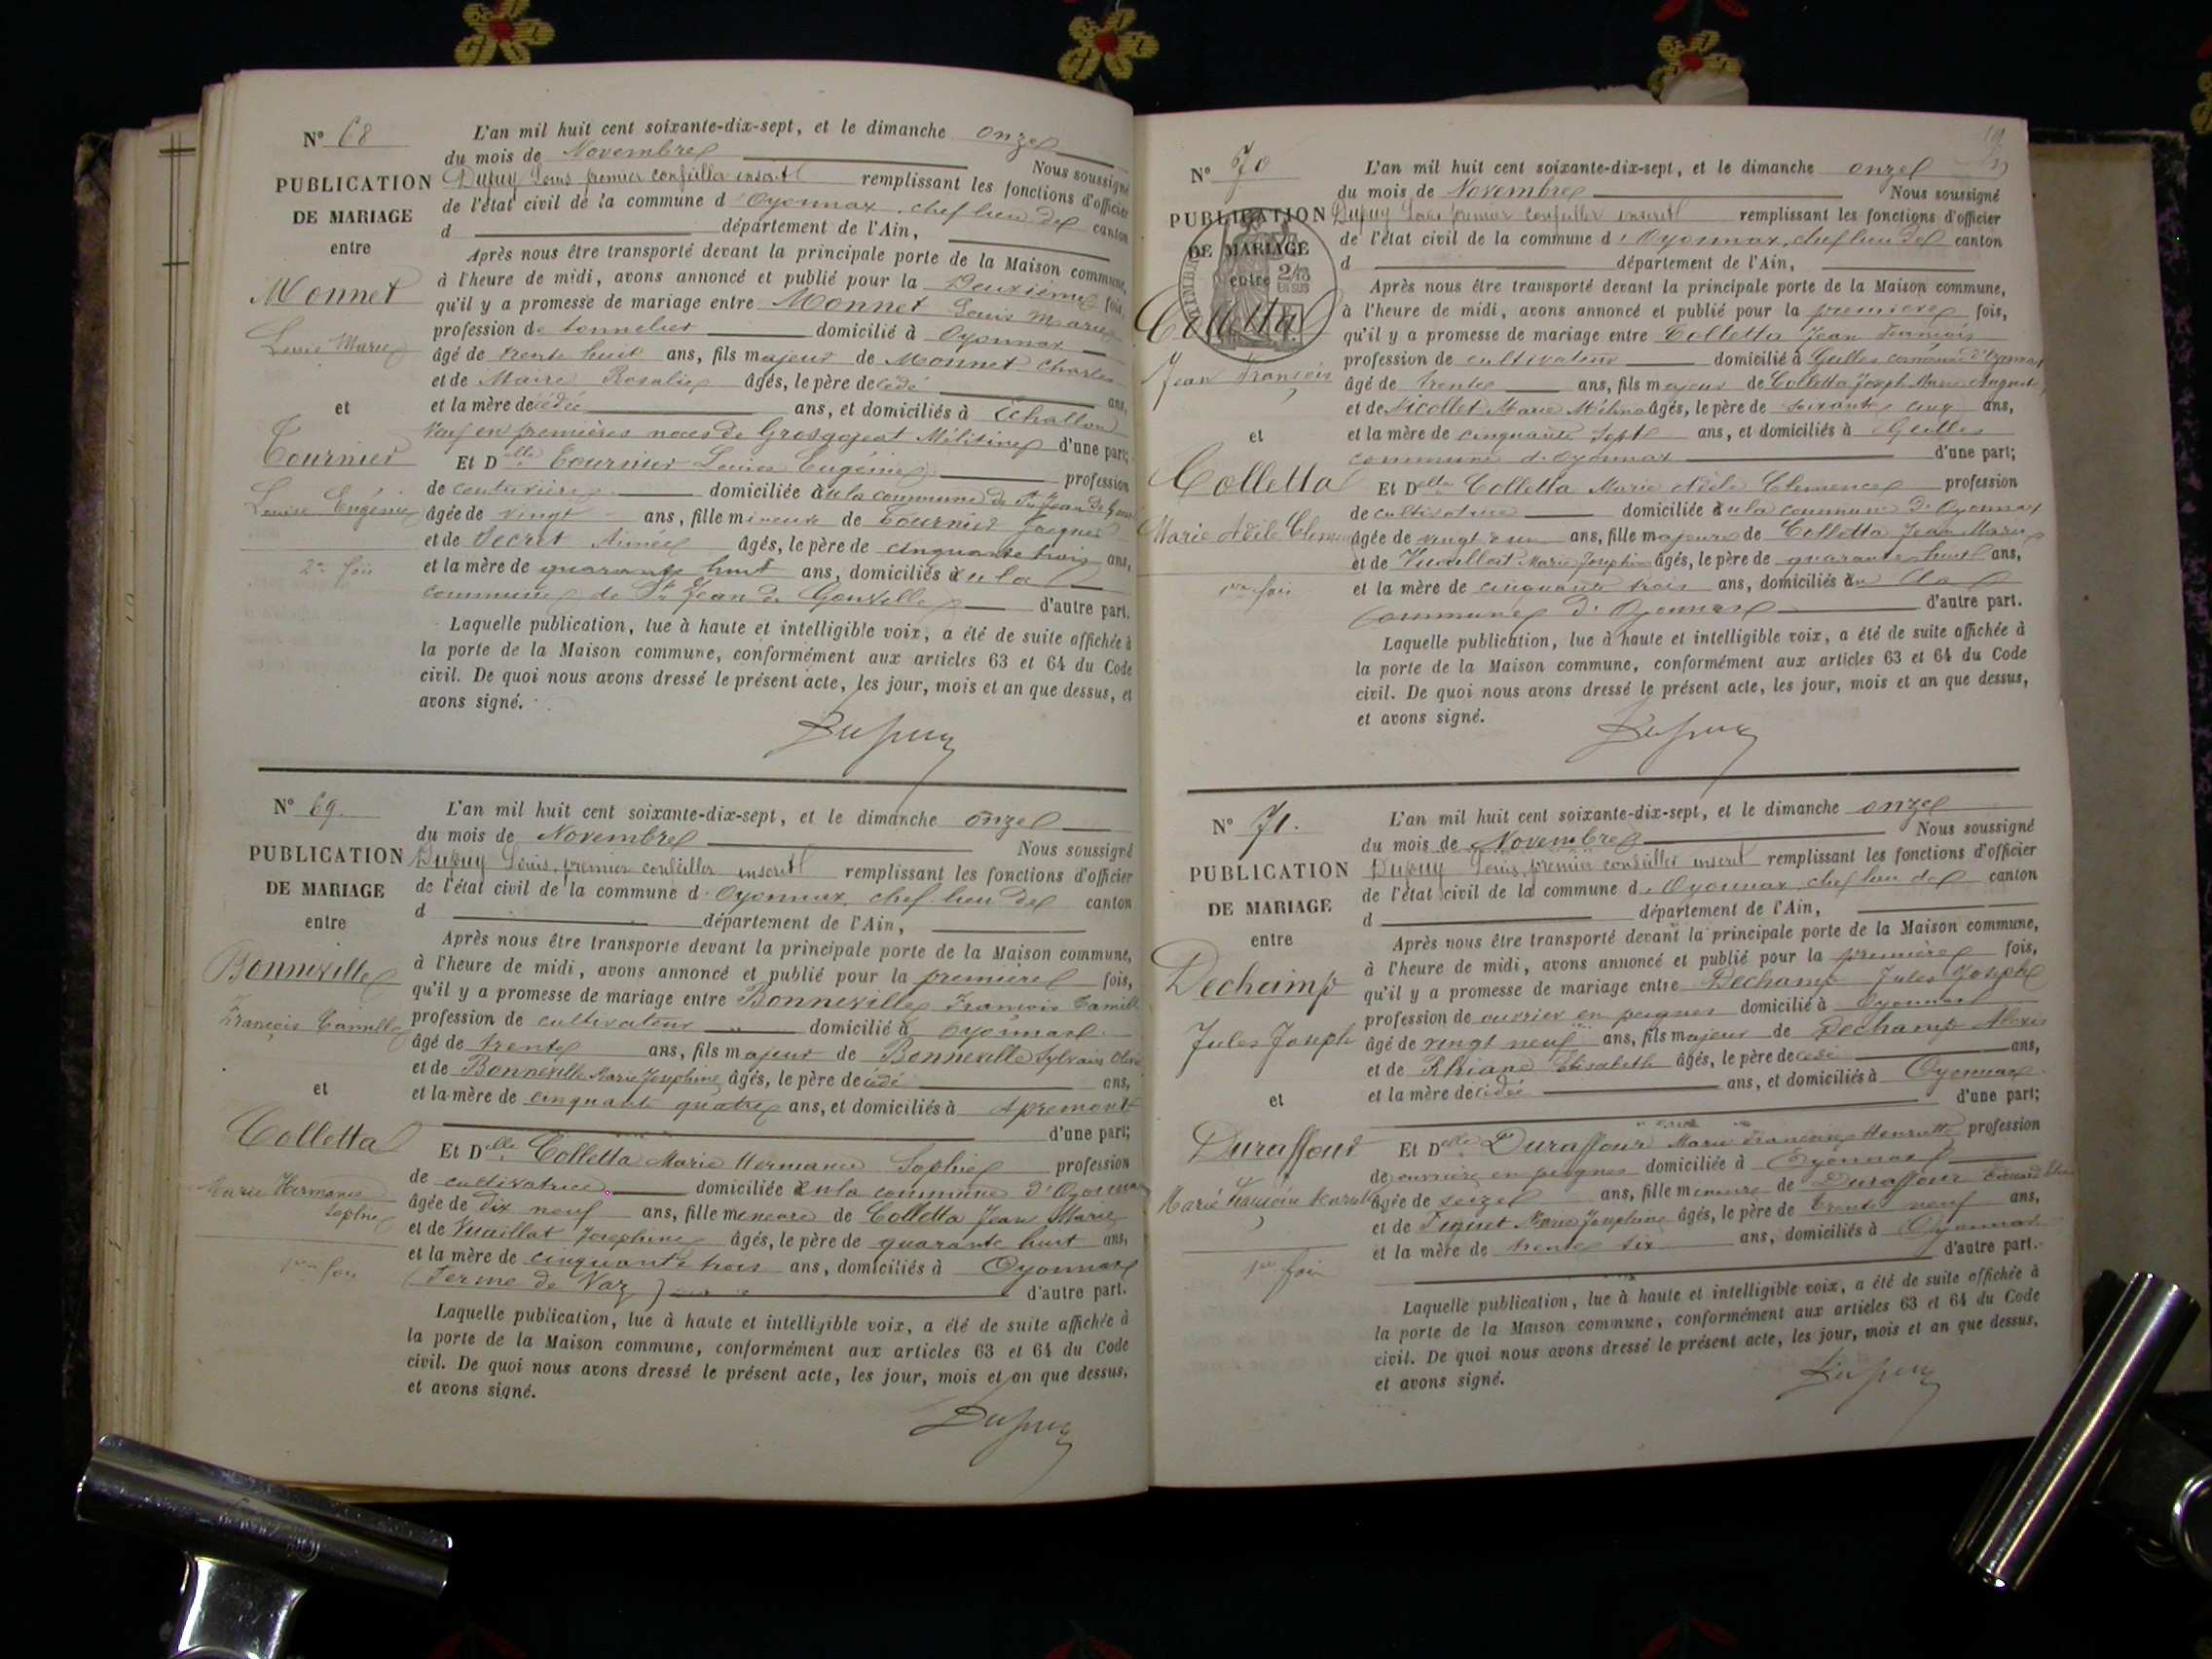 N° 68
PUBLICATION
DE MARIAGE
entre
Monnet
Louis Marie
et
Tournier
Louise Eugénie
2me fois
L'an mil huit cent soixante-dix-sept, et le dimanche onze
du mois de Novembre Nous soussigné
Dupuy Louis premier conseiller inscrit remplissant les fonctions d'officier
de l'état civil de la commune d'Oyonnax, chef lieu de canton
d département de l'Ain,
Après nous être transporté devant la principale porte de la Maison commune,
à l'heure de midi, avons annoncé et publié pour la Deuxième fois,
qu'il y a promesse de mariage entre Monnet Louis Marie
profession de tonnelier domicilié à Oyonnax
âgé de trente huit ans, fils majeur de Monnet Charles
et de Maire Rosalie âgés, le père decédé ans,
et la mère decédée ans, et domiciliés à Echallon
Veuf en premières noces de Grosgojeat Mélitine d'une part;
Et Delle Tournier Louise Eugénie profession
de couturière domiciliée à la commune de St Jean de Gonv
âgée de vingt ans, fille mineure de Tournier Jacques
et de Secret Aimée âgés, le père de cinquante trois ans,
et la mère de quarante huit ans, domiciliés à la
commune de St Jean de Gonville d'autre part.
Laquelle publication, lue à haute et intelligible voix, a été de suite affichée à
la porte de la Maison commune, conformément aux articles 63 et 64 du Code
civil. De quoi nous avons dressé le présent acte, les jour, mois et an que dessus, et
avons signé.
Dupuy
N° 69.
PUBLICATION
DE MARIAGE
entre
Bonneville
François Camille
et
Colletta
Marie Hermance
Sophie
1ere fois
L'an mil huit cent soixante-dix-sept, et le dimanche onze
du mois de Novembre Nous soussigné
Dupuy Louis, premier conseiller inscrit remplissant les fonctions d'officier
de l'état civil de la commune d'Oyonnax, chef lieu de canton
d département de l'Ain,
Après nous être transporté devant la principale porte de la Maison commune,
à l'heure de midi, avons annoncé et publié pour la première fois,
qu'il y a promesse de mariage entre Bonneville François Camille
profession de cultivateur domicilié à Oyonnax
âgé de trente ans, fils majeur de Bonneville Sylvain
et de Bonneville Marie Josephine âgés, le père decédé ans,
et la mère de cinquante quatre ans, et domiciliés à Apremont
d'une part;
Et Delle Colletta Marie Hermance Sophie profession
de cultivatrice domiciliée en la commune d'Oyonnax
âgée de dix neuf ans, fille mineure de Colletta Jean Marie
et de Vuaillat Josephine âgés, le père de quarante huit ans,
et la mère de cinquante trois ans, domiciliés à Oyonnax
(Ferme de Vaz) d'autre part.
Laquelle publication, lue à haute et intelligible voix, a été de suite affichée à
la porte de la Maison commune, conformément aux articles 63 et 64 du Code
civil. De quoi nous avons dressé le présent acte, les jour, mois et an que dessus,
et avons signé.
Dupuy
N° 70
PUBLICATION
DE MARIAGE
entre
2/10
EN SUS
Colletta
Jean François
et
Colletta
Marie Adèle Clemence
1ere fois
L'an mil huit cent soixante-dix-sept, et le dimanche onze
du mois de Novembre Nous soussigné
Dupuy Louis premier conseiller inscrit remplissant les fonctions d'officier
de l'état civil de la commune d'Oyonnax, chef lieu de canton
d département de l'Ain,
Après nous être transporté devant la principale porte de la Maison commune,
à l'heure de midi, avons annoncé et publié pour la première fois,
qu'il y a promesse de mariage entre Colletta Jean François
profession de cultivateur domicilié à Geilles commune d'Oyonnax
âgé de trente ans, fils majeur de Colletta Joseph Marie Auguste
et de Nicollet Marie âgés, le père de soixante cinq ans,
et la mère de cinquante sept ans, et domiciliés à Geilles
commune d'Oyonnax d'une part;
Et Delle Colletta Marie Adèle Clemence profession
de cultivatrice domiciliée à la commune d'Oyonnax
âgée de vingt un ans, fille majeure de Colletta Jean Marie
et de Vuaillat Marie Josephine âgés, le père de quarante huit ans,
et la mère de cinquante trois ans, domiciliés en la
commune d'Oyonnax d'autre part.
Laquelle publication, lue à haute et intelligible voix, a été de suite affichée à
la porte de la Maison commune, conformément aux articles 63 et 64 du Code
civil. De quoi nous avons dressé le présent acte, les jour, mois et an que dessus,
et avons signé.
Dupuy
N° 71.
PUBLICATION
DE MARIAGE
entre
Dechamp
Jules Joseph
et
Duraffour
Marie Françoise Henriette
1ere fois
L'an mil huit cent soixante-dix-sept, et le dimanche onze
du mois de Novembre Nous soussigné
Dupuy Louis, premier conseiller inscrit remplissant les fonctions d'officier
de l'état civil de la commune d'Oyonnax, chef lieu de canton
d département de l'Ain,
Après nous être transporté devant la principale porte de la Maison commune,
à l'heure de midi, avons annoncé et publié pour la première fois,
qu'il y a promesse de mariage entre Dechamp Jules Joseph
profession de ouvrier en peignes domicilié à Oyonnax
âgé de vingt neuf ans, fils majeur de Dechamp Alexis
et de Rhiane Elisabeth âgés, le père decédé ans,
et la mère decédée ans, et domiciliés à Oyonnax
d'une part;
Et Delle Duraffour Marie Françoise Henriette profession
de ouvrière en peignes domiciliée à Oyonnax
âgée de seize ans, fille mineure de Duraffour
et de Marie Josephine âgés, le père de trente neuf ans,
et la mère de trente six ans, domiciliés à Oyonnax
d'autre part.
Laquelle publication, lue à haute et intelligible voix, a été de suite affichée à
la porte de la Maison commune, conformément aux articles 63 et 64 du Code
civil. De quoi nous avons dressé le présent acte, les jour, mois et an que dessus,
et avons signé.
Dupuy